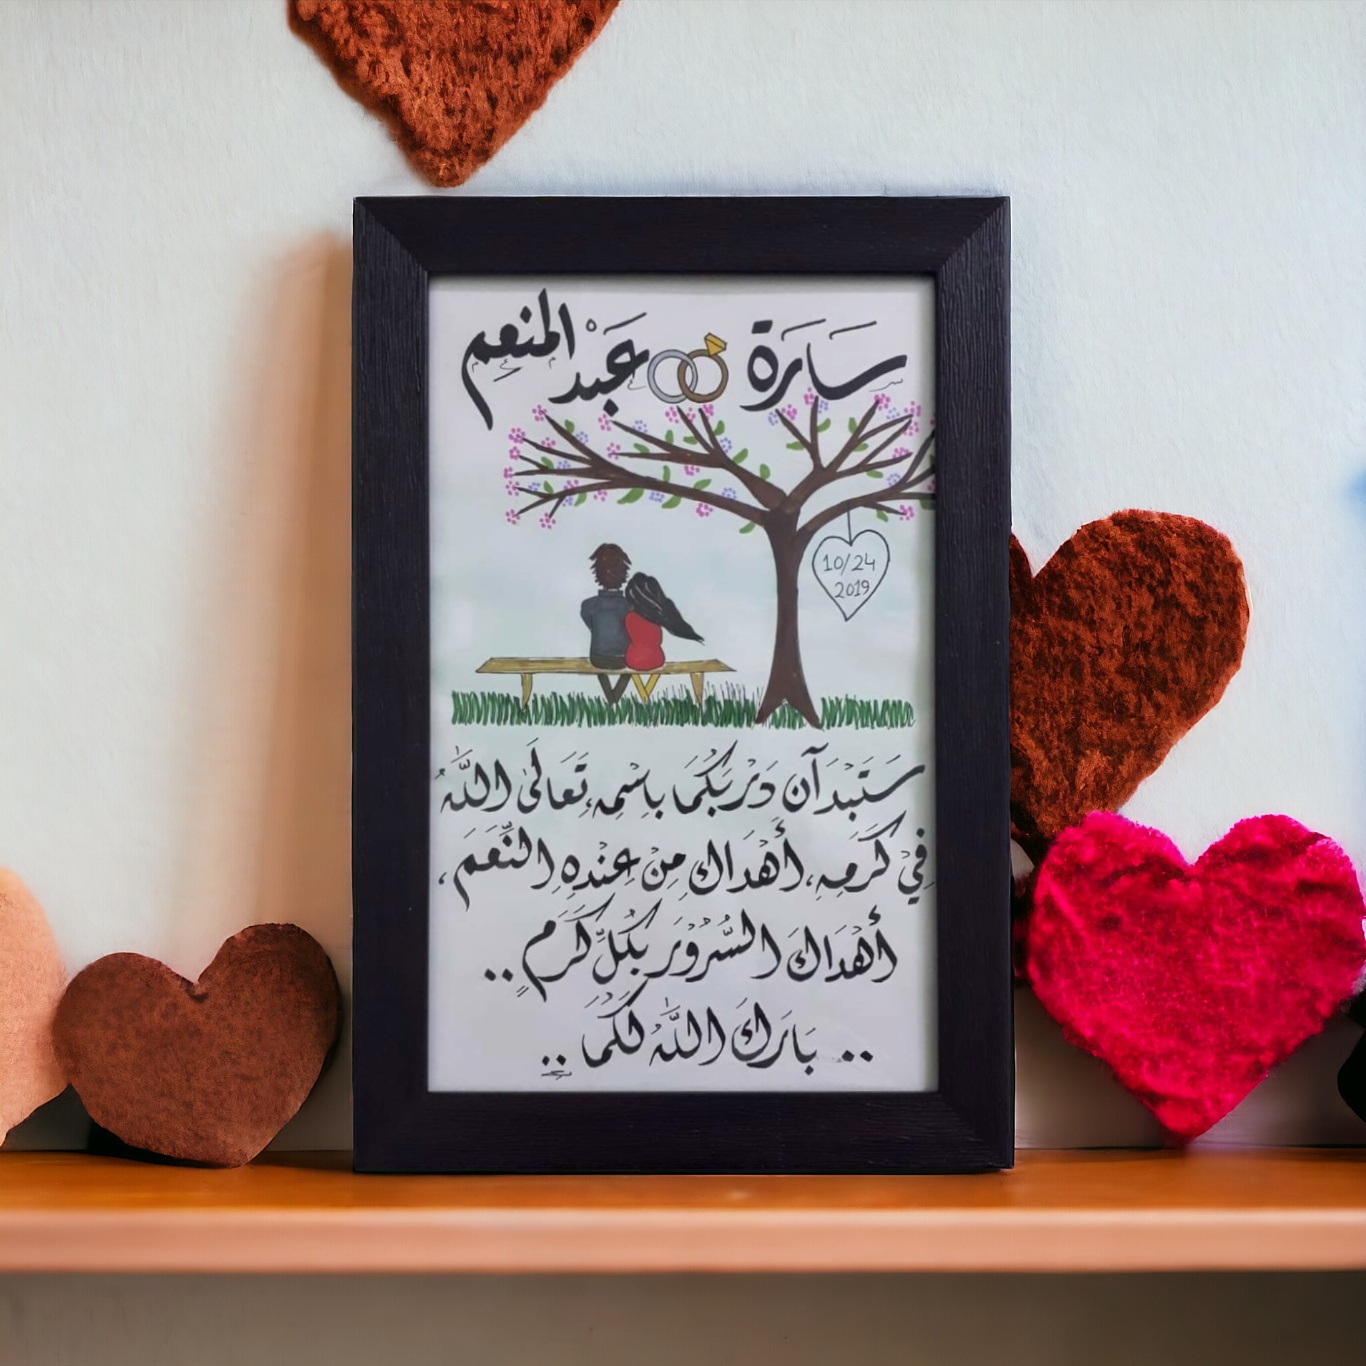 سَارَة عَبْد المنعِم
10/24
2019
سَتَبْدَآن دَرْبَكُمَا بِاسْمِهِ تَعَالَى اللَّهُ
فِي كَرَمِهِ، أَهْدَاك مِنْ عِنْدِهِ النِّعَمَ،
أَهْدَاكَ السُّرُورَ بِكُلِّ كَرَمٍ ..
.. بَارَكَ اللَّهُ لَكُمَا ..